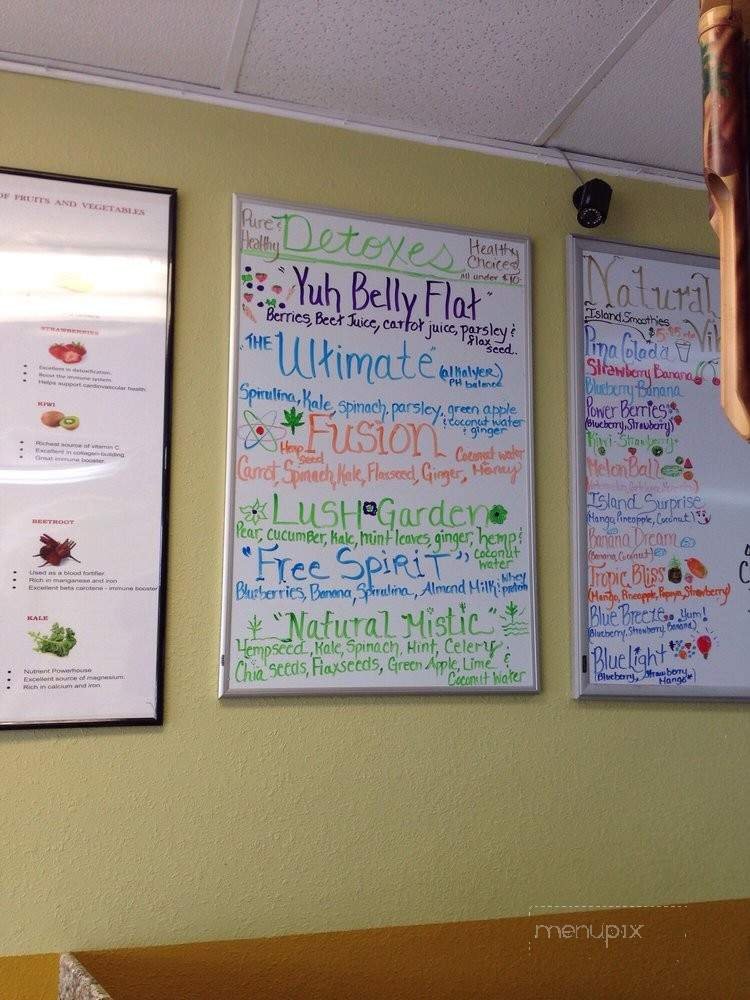 OF FRUITS AND VEGETABLES
STRAWBERRIES
Excellent in detoxification.
Boost the immune system.
Helps support cardiovascular health.
KIWI
Richest source of vitamin C.
Excellent in collagen-building.
Great immune booster.
BEETROOT
Used as a blood fortifier
Rich in manganese and iron
Excellent beta carotene - immune booster
KALE
Nutrient Powerhouse
Excellent source of magnesium.
Rich in calcium and iron.
Pure &
Healthy
Detoxes
Healthy
Choices
All under $10
"Yuh Belly Flat"
Berries, Beet Juice, carrot juice, parsley &
flax
seed..
"THE Ultimate" (alkalyzer)
PH balance
Spirulina, Kale, spinach, parsley, green apple
& coconut water
& ginger
Fusion
Hemp
seed
Coconut water
Carrot, Spinach, Kale, Flaxseed, Ginger, Honey
LUSH Garden
Pear, cucumber, kale, mint leaves, ginger, hemp &
coconut
water
"Free Spirit"
Blueberries, Banana, Spirulina, Almond Milk & whey
protein
"Natural Mistic"
Hempseed, Kale, Spinach, Mint, Celery,
Chia seeds, Flaxseeds, Green Apple, Lime &
Coconut Water
Natural
Vib
Island Smoothies
Pina Colada
Strawberry Banana
Blueberry-Banana
Power Berries
(Blueberry, Strawberry)
Kiwi-Strawberry
Melon Ball
Island Surprise
(Mango, Pineapple, Coconut)
Banana Dream
(Banana, Coconut)
Tropic Bliss
(Mango, Pineapple, Papaya, Strawberry)
Blue Breeze Yum!
(Blueberry, Strawberry, Banana)
Blue Light
(Blueberry, Strawberry
Mango)
menupix